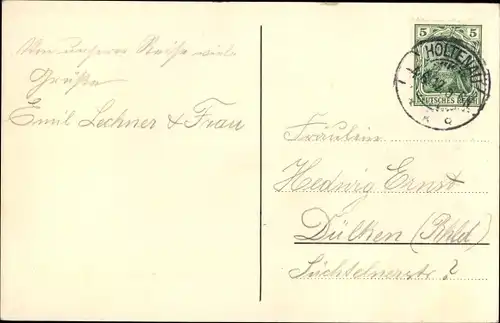 Von unserer Reise viele
Grüße
Emil Lechner & Frau
5 5
HOLTENAU
DEUTSCHES REICH
Fräulein
Hedwig Ernst
Dülken (Rhld)
Süchtelnerstr ?